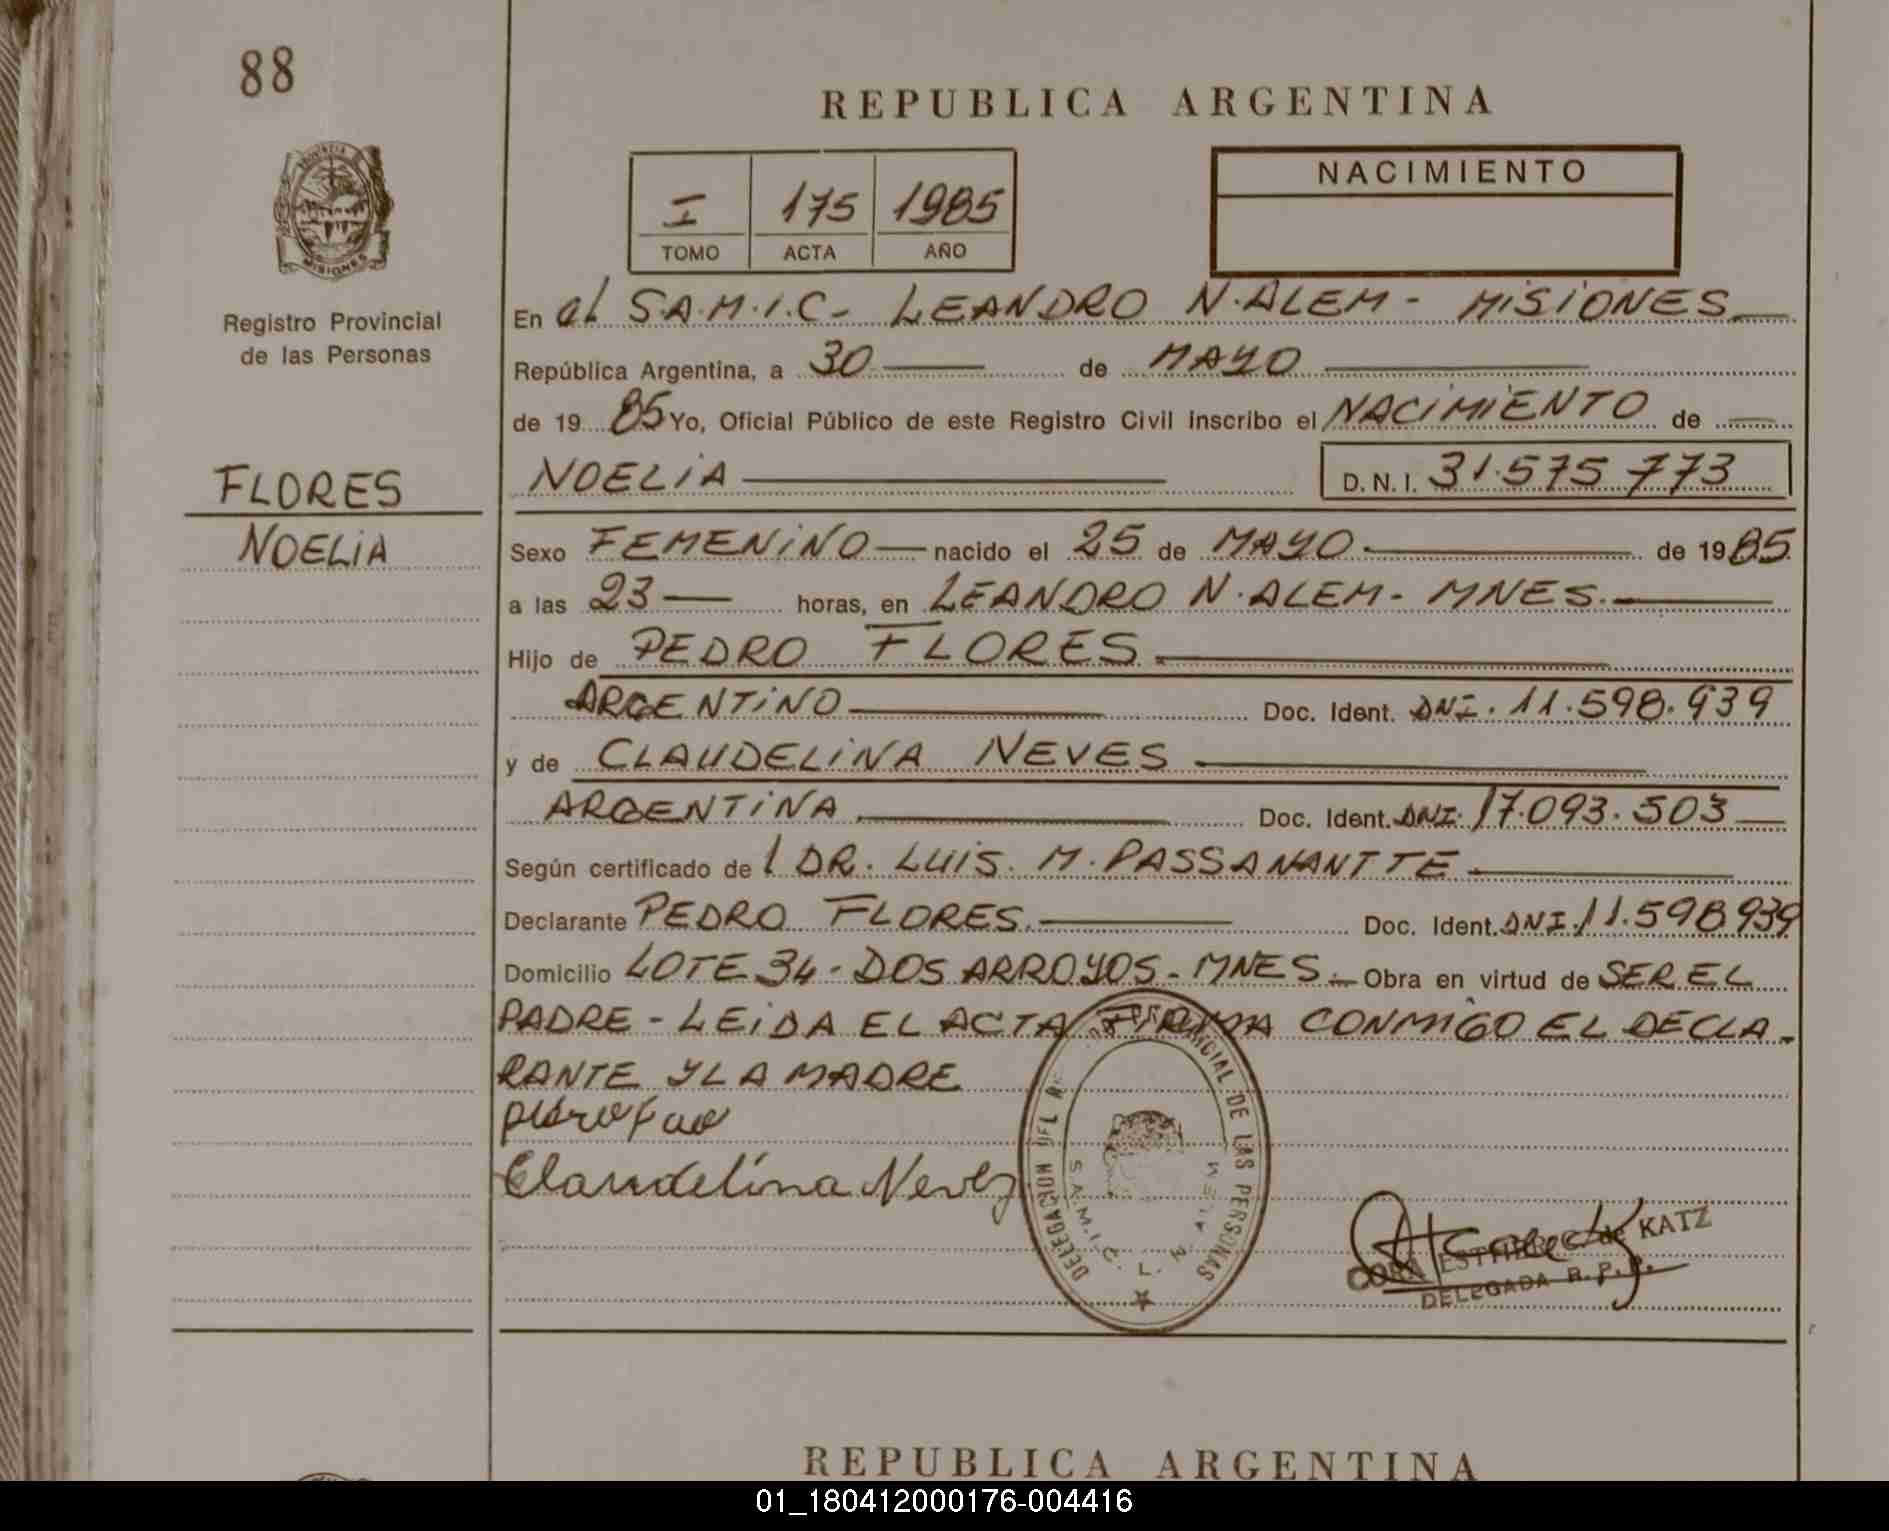 88
REPUBLICA ARGENTINA
I 175 1985
TOMO ACTA AÑO
NACIMIENTO
PROVINCIA DE
MISIONES
Registro Provincial
de las Personas
En el S.A.M.I.C- LEANDRO N.ALEM- MISIONES
República Argentina, a 30 de MAYO
de 1985 Yo, Oficial Público de este Registro Civil inscribo el NACIMIENTO de
FLORES
NOELIA
NOELIA D.N.I. 31.575 773
Sexo FEMENINO nacido el 25 de MAYO de 1985
a las 23 horas, en LEANDRO N.ALEM- MNES.
Hijo de PEDRO FLORES
ARGENTINO Doc. Ident. DNI. 11.598.939
y de CLAUDELINA NEVES
ARGENTINA Doc. Ident. DNI. 17.093.503
Según certificado de l DR. LUIS. M. PASSANANTTE
Declarante PEDRO FLORES. Doc. Ident. DNI. 11.598939
Domicilio LOTE 34- DOS ARROYOS- MNES. Obra en virtud de SER EL
PADRE- LEIDA EL ACTA FIRMA CONMIGO EL DECLA-
RANTE Y LA MADRE
Claudelina Neves
DELEGACION DEL PROVINCIAL DE LAS PERSONAS
S.A.M.I.C. L. N. ALEM
CORA ESTHER C. de KATZ
DELEGADA R. P. P.
REPUBLICA ARGENTINA
01_180412000176-004416